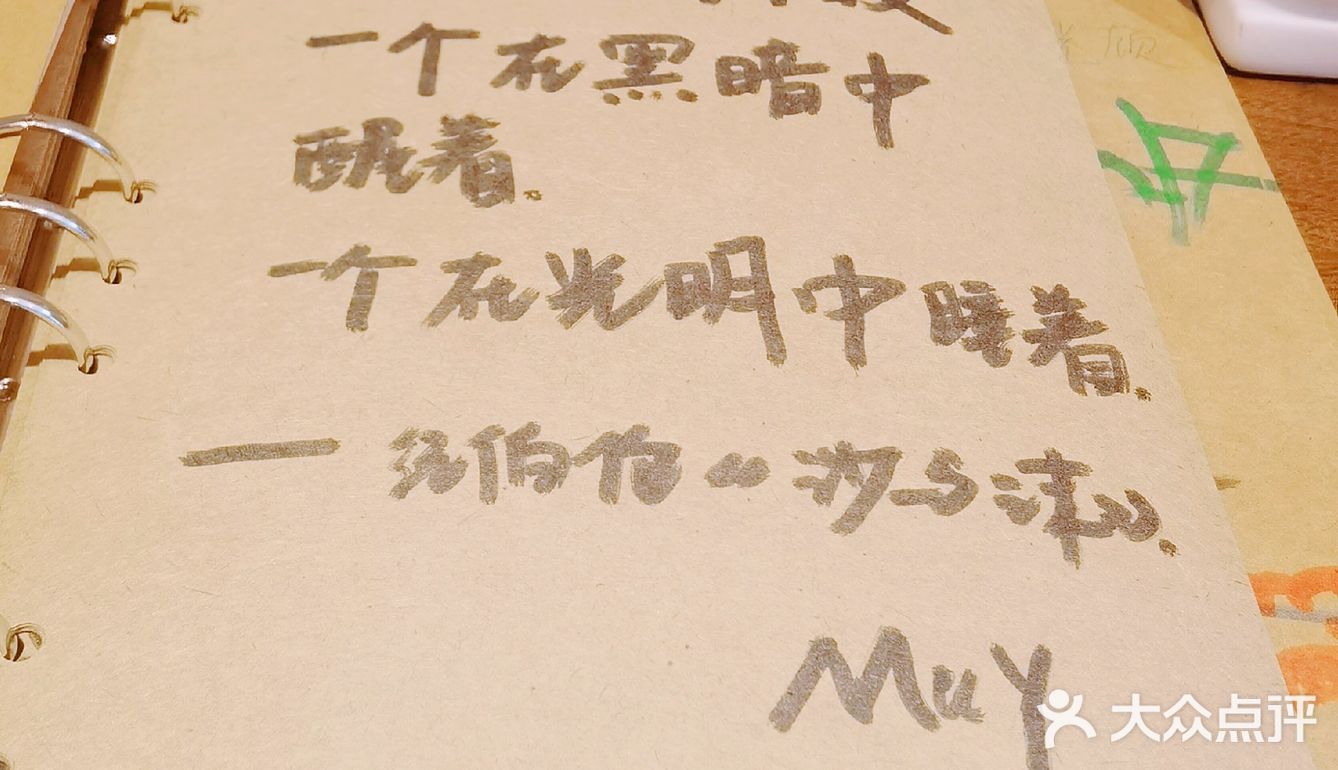 一个在黑暗中
醒着。
一个在光明中睡着。
— 纪伯伦《沙与沫》.
MuY
大众点评